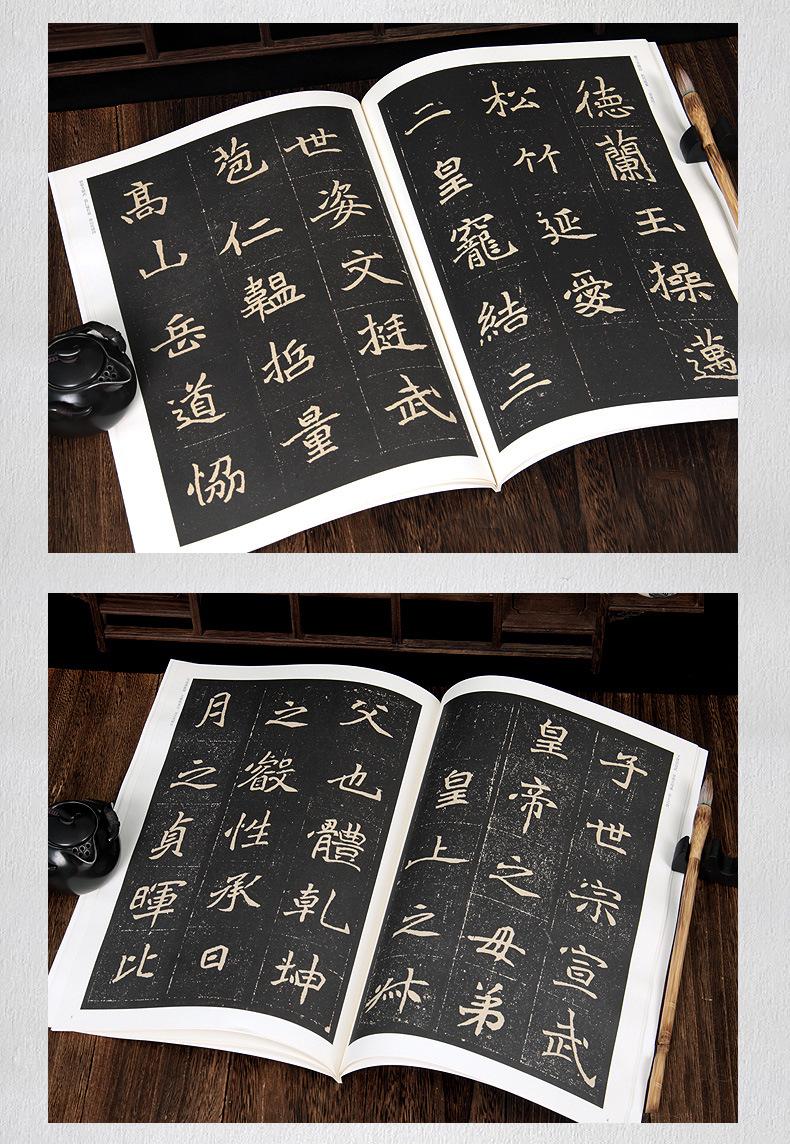 德蘭玉操邁
松竹延愛
二皇寵結三
世姿文挺武
苞仁韞哲量
高山岳道恊
子世宗宣武
皇帝之母弟
皇上之叔
父也體乾坤
之叡性承日
月之貞暉比